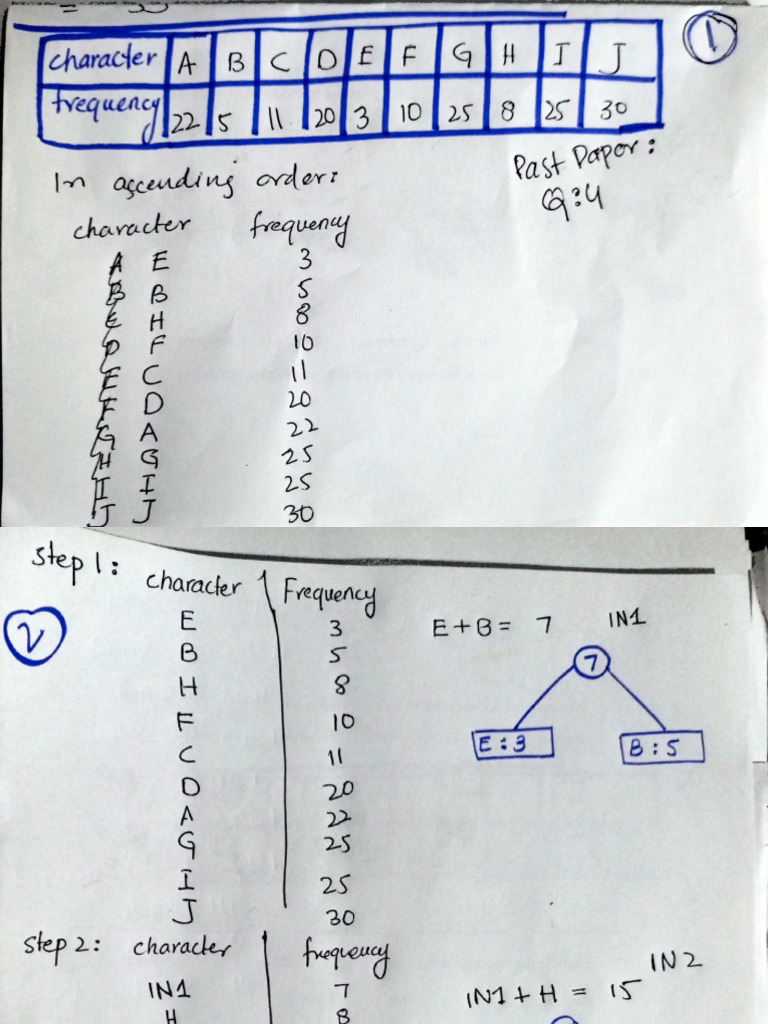 1
character A B C D E F G H I J
frequency 22 5 11 20 3 10 25 8 25 30
Past Paper:
Q:4
In ascending order:
character frequency
A E 3
B B 5
E H 8
D F 10
E C 11
F D 20
G A 22
H G 25
I I 25
J J 30
Step 1: character Frequency
2
E 3 E+B= 7 IN1
B 5 7
H 8
F 10
C 11 E:3 B:5
D 20
A 22
G 25
I 25
J 30
Step 2: character frequency
IN1 7 IN1+H = 15 IN2
H 8